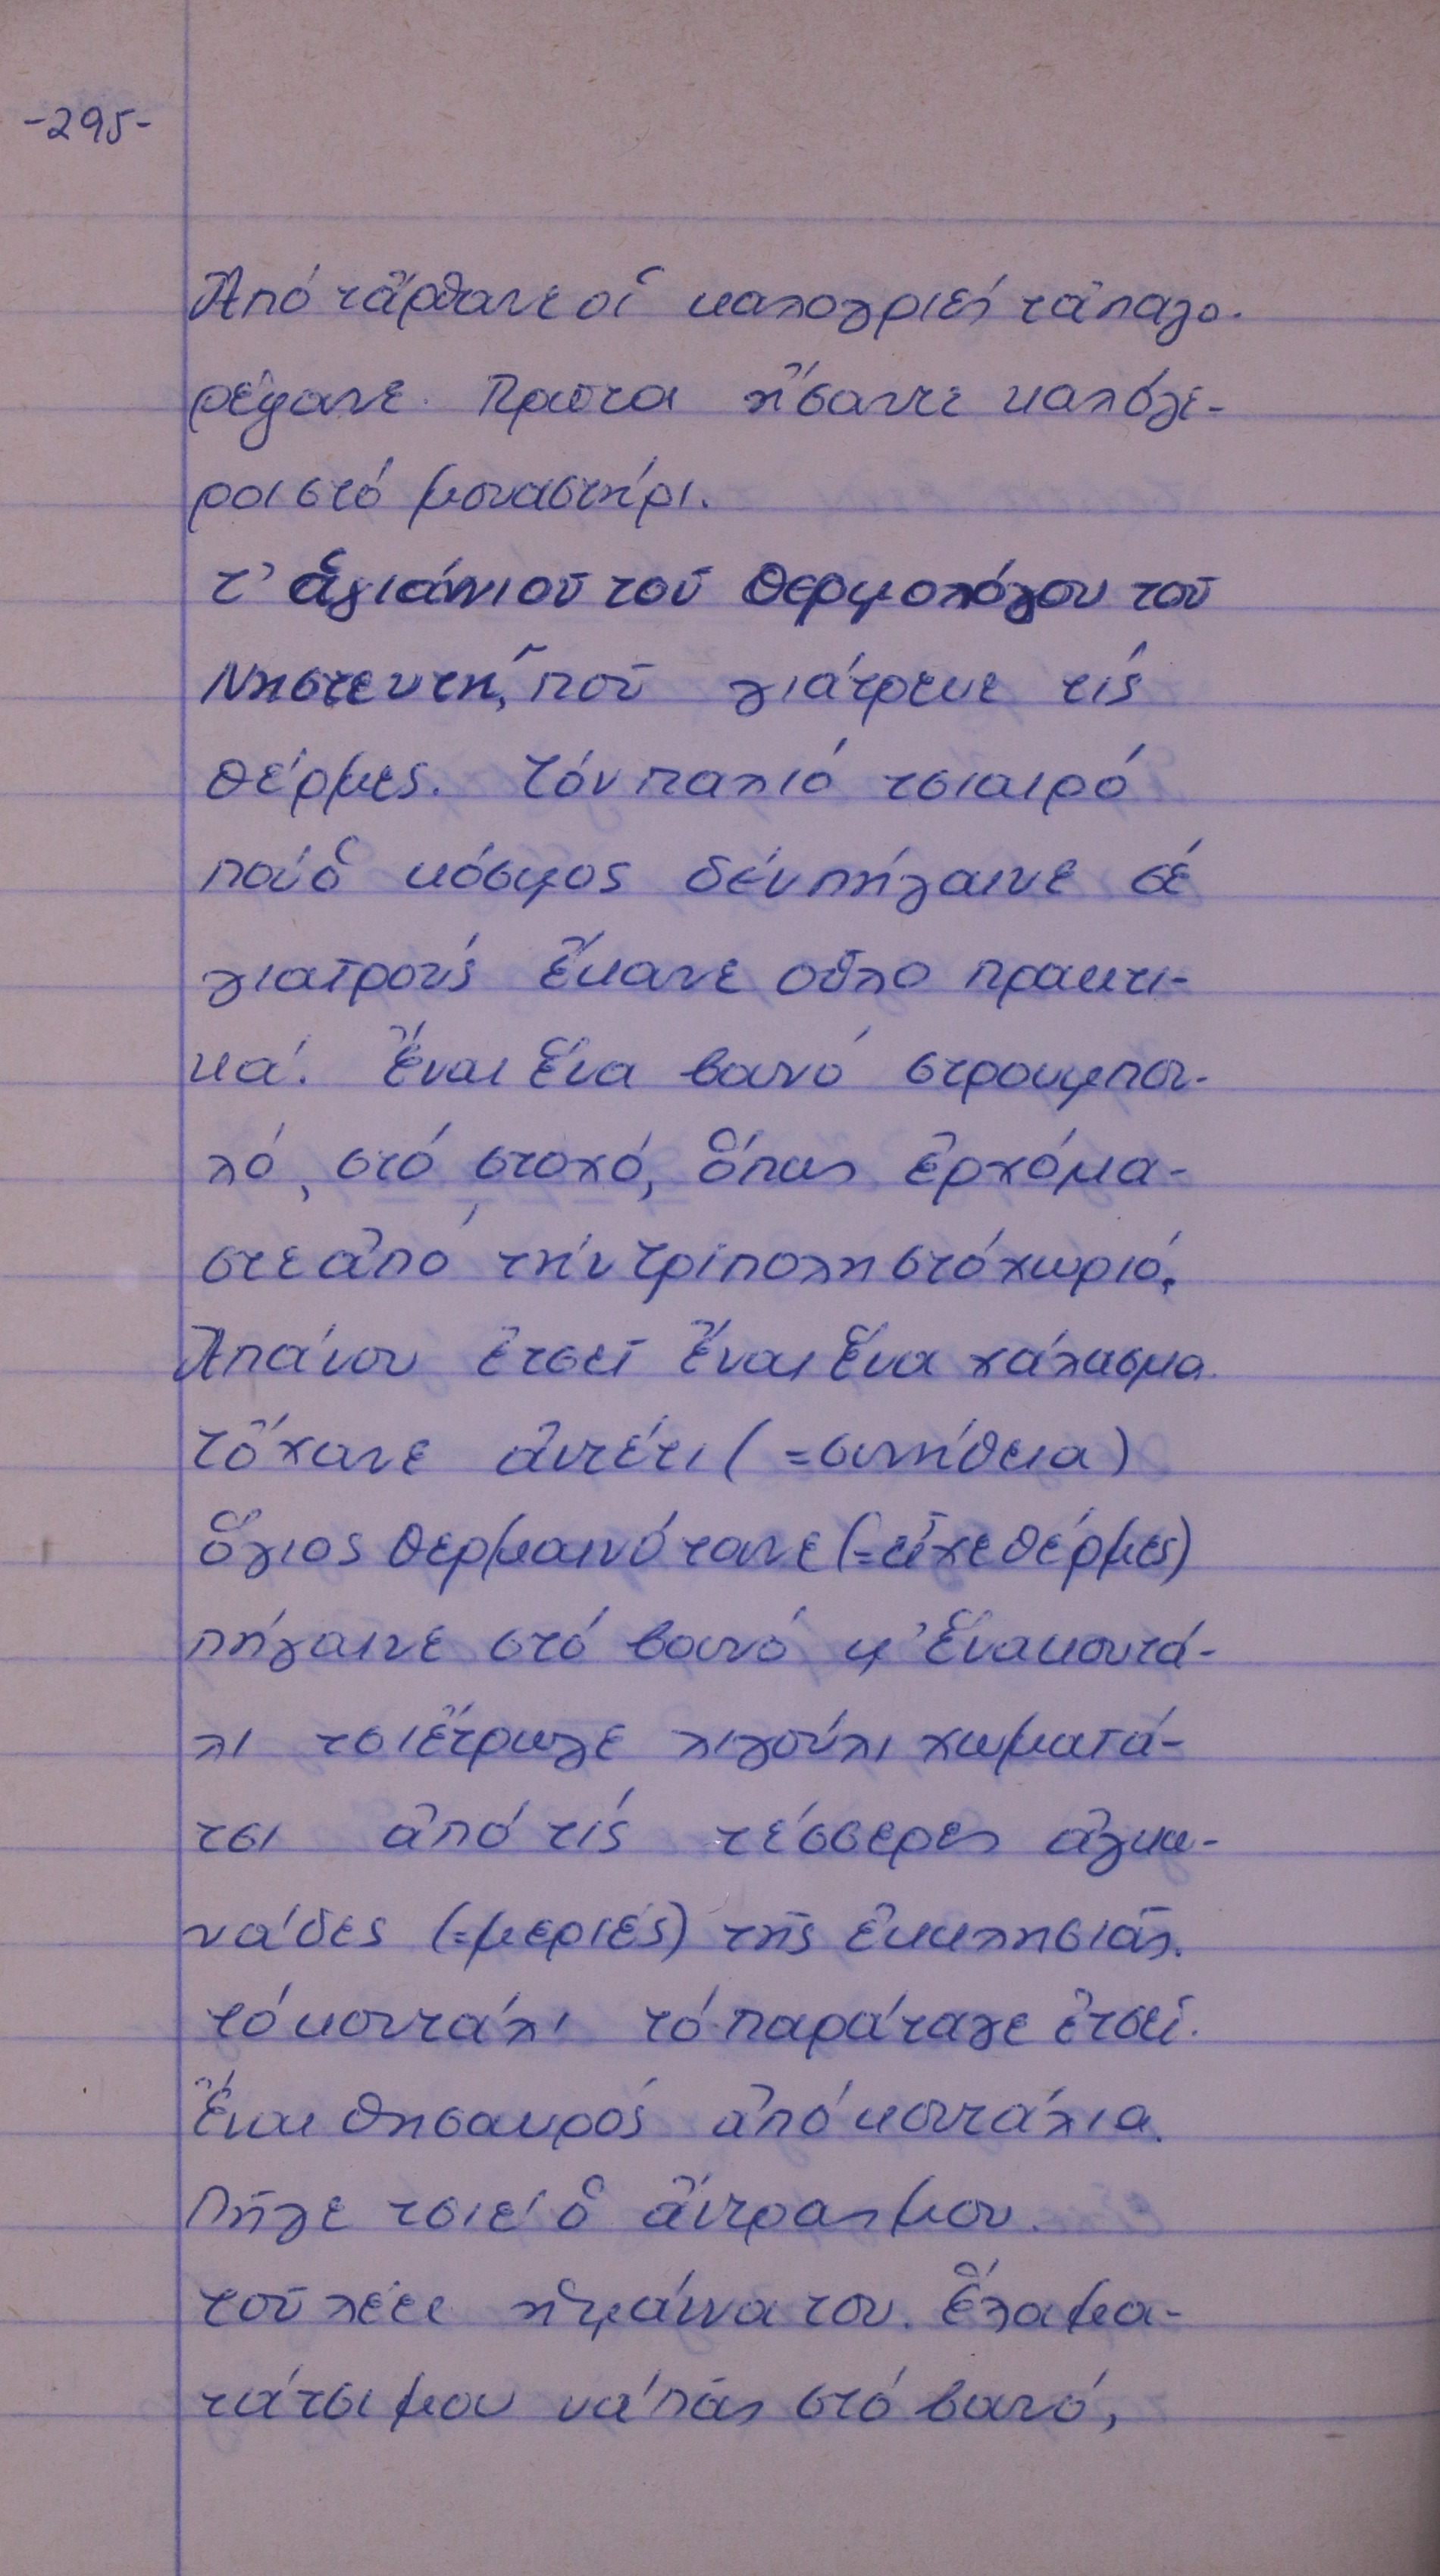 -295-
Ἀπό τἄρθανε οἱ καλογριές τἀπαγο-
ρέψανε. Πρῶτα ἤσαντε καλόγε-
ροι στό μοναστήρι.
τ' ἁγιάννιοῦ τοῦ Θερμολόγου τοῦ
Νηστευτῆ, ποῦ γιάτρευε τίς
θέρμες. Τόν παλιό τσιαιρό
πού ὁ κόσμος δέν πήγαινε σέ
γιατρούς ἔκανε οὗλο πρακτι-
κά. Ἔναι ἕνα βουνό στρουμπου-
λό, στό στοχό, ὅπως ἐρχόμα-
στε ἀπό τήν Τρίπολη στό χωριό.
Ἀπάνου ἐτσεῖ ἔναι ἕνα χάλασμα.
τὄχανε ἀντέτι (=συνήθεια)
ὅγιος θερμαινότανε (=εἶχε θέρμες)
πήγαινε στό βουνό μ' ἕνα κουτά-
λι τσι ἔτρωγε λιγούλι χωματά-
τσι ἀπό τίς τέσσερες ἀγκω-
νάδες (=μεριές) τῆς ἐκκλησιᾶς.
τό κουτάλι τό παράταγε ἐτσεῖ.
Ἔναι θησαυρός ἀπό κουτάλια.
Πῆγε τσιέ ὁ ἄντρας μου.
τοῦ λέει ἡ μάννα του. Ἔλα μα-
τάτσι μου νά πᾶς στό βουνό,